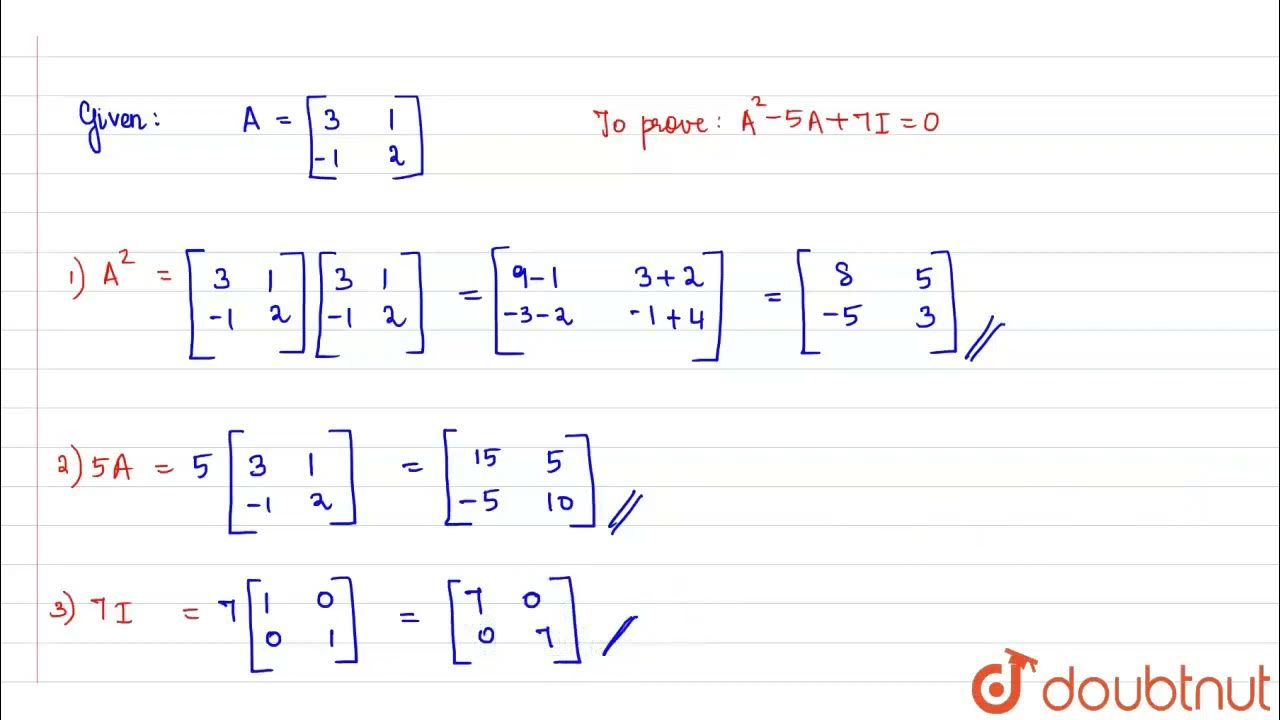 Given: A = [3 1; -1 2] To prove: A² - 5A + 7I = 0
1) A² = [3 1; -1 2] [3 1; -1 2] = [9-1 3+2; -3-2 -1+4] = [8 5; -5 3]
2) 5A = 5 [3 1; -1 2] = [15 5; -5 10]
3) 7I = 7 [1 0; 0 1] = [7 0; 0 7]
doubtnut